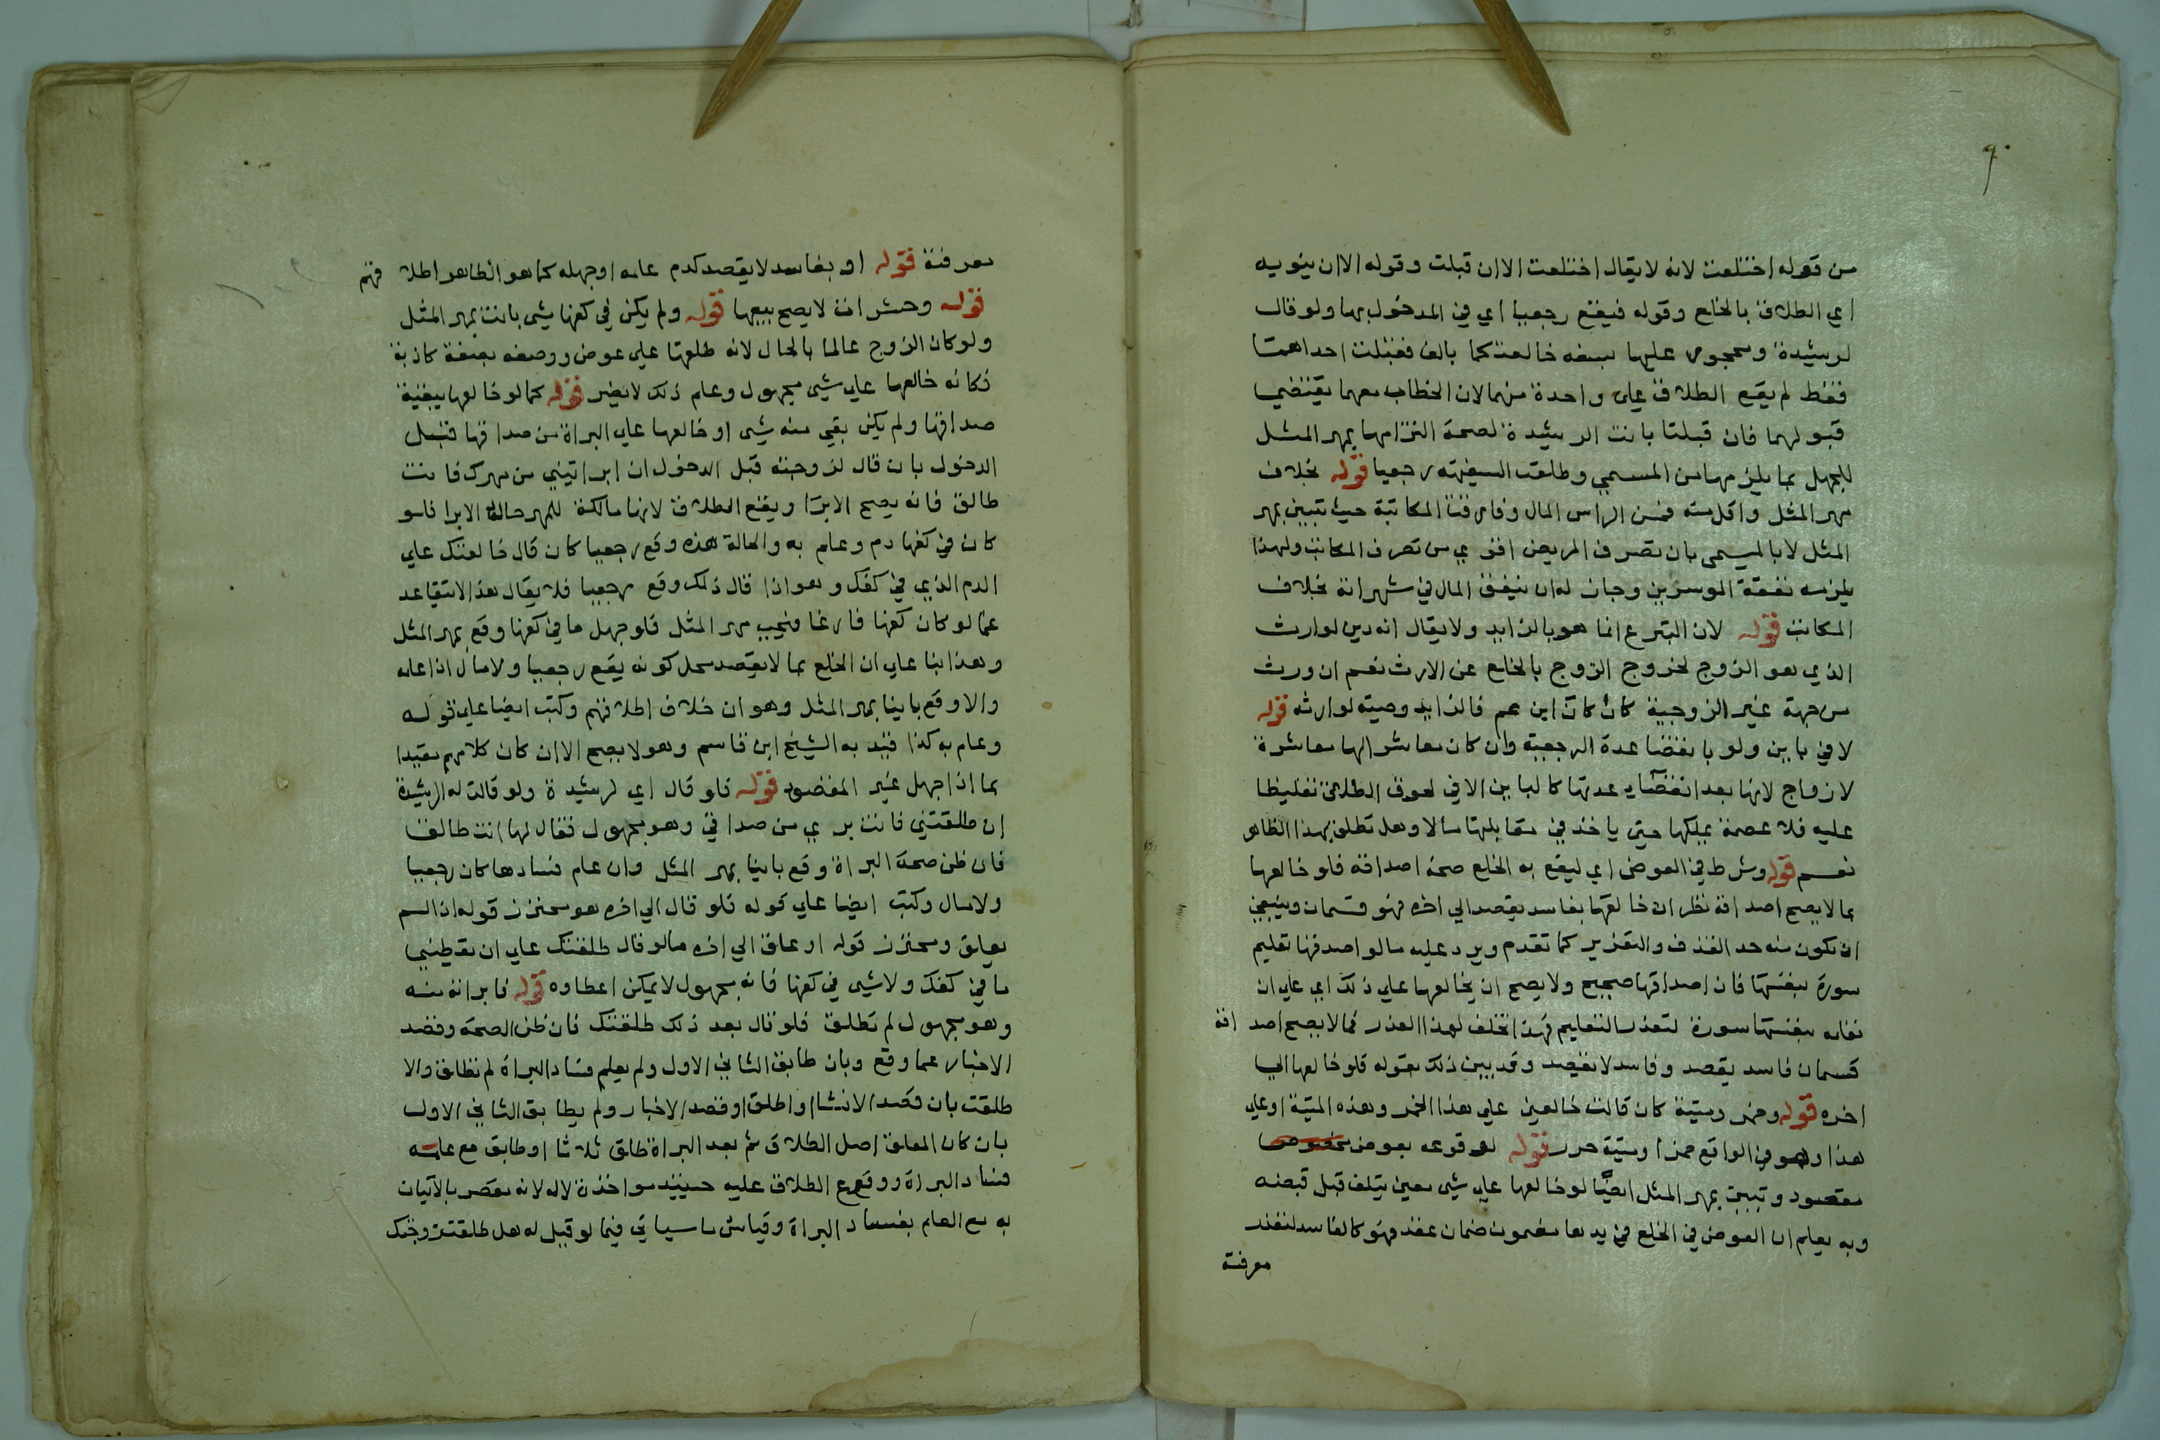 ٩٠
من قوله اختلعت لانه لا يقال اختلعت الا ان قبلت وقوله الا ان ينويه
اي الطلاق بالخلع وقوله فيقع رجعيا اي في المدخول بها ولو قال
لرشيدة ومحجور عليها بسفه خالعتكما بالف فقبلت احداهما
فقط لم يقع الطلاق علي واحدة منهما لان الخطاب معهما يقتضي
قبولهما فان قبلتا بانت الرشيدة لصحة التزامها بمهر المثل
للجهل بما يلزمها من المسمي وطلقت السفيهة رجعيا قوله بخلاف
مهر المثل واقل منه فمن الراس المال وفارقت المكاتبة حيث تبين بمهر
المثل لا بالمسمى بان تصرف المريض اقوي من تصرف المكاتب ولهذا
يلزمه نفقة الموسرين وجاز له ان ينفق المال في شهواته بخلاف
المكاتب قوله لان التبرع انما هو بالزايد ولا يقال انه دين لوارث
الذي هو الزوج لخروج الزوج بالخلع عن الارث نعم ان ورث
من جهة غير الزوجية كان كان ابن عم فالزايد وصية لوارثه قوله
لا في باين ولو بانقضا عدة الرجعية وان كان معاشرا لها معاشرة
الازواج لانها بعد انقضاء عدتها كالباين الا في لحوق الطلاق تغليظا
عليه فلا عصمة يملكها حتي ياخذ في مقابلتها مالا وهل تطلق بهذا الظاهر
نعم قوله وشرط في العوض اي ليقع به الخلع صحة اصداقه فلو خالعها
بما لا يصح اصداقه نظر ان خالعها بفاسد يقصد الي اخره فهو قسمان وينبغي
ان تكون منه حد القذف والتعزير كما تقدم ويرد عليه ما لو اصدقها تعليم
سورة بنفسها فان اصداقها صحيح ولا يصح ان يخالعها علي ذلك اي علي ان
تعلمه بنفسها سورة لتعذر التعليم فهذا تخلف لهذا العذر فما لا يصح اصداقه
قسمان فاسد يقصد وفاسد لا يقصد وقد بين ذلك بقوله فلو خالعها الي
اخره قوله وخمر وميتة كان قالت خالعني علي هذا الخمر وهذه الميتة او علي
هذا وهو في الواقع خمرا وميتة حرر قوله لوقوعه بعوض
مقصود وتبين بمهر المثل ايضا لو خالعها علي شي معين يتلف قبل قبضه
وبه يعلم ان العوض في الخلع في يدها مضمون ضمان عقد فهو كالفاسد لتعذر
معرفته
معرفته قوله او بفاسد لا يقصد كدم علمه او جهله كما هو الظاهر اطلاقهم
قوله وحشرات لا يصح بيعها قوله ولم يكن في كفها شي بانت بمهر المثل
ولو كان الزوج عالما بالحال لانه طلقها علي عوض ووصفه بصفة كاذبة
فكانه خالعها علي شي مجهول وعلم ذلك لا يضر قوله كما لو خالعها ببقية
صداقها ولم يكن بقي منه شي او خالعها علي البراة من صداقها قبل
الدخول بان قال لزوجته قبل الدخول ان ابراتيني من مهرك فانت
طالق فانه يصح الابرا ويقع الطلاق لانها مالكة للمهر حالة الابرا فلو
كان في كفها دم وعلم به والحالة هذه وقع رجعيا كان قال خالعتك علي
الدم الذي في كفك وهو اذا قال ذلك وقع رجعيا فلا يقال هذا لا يتقاعد
عما لو كان كفها فارغا فيجب مهر المثل فلو جهل ما في كفها وقع بمهر المثل
وهذا بنا علي ان الخلع بما لا يقصد محل كونه يقع رجعيا ولا مال اذا علمه
والا وقع باينا بمهر المثل وهو ان خلاف اطلاقهم وكتب ايضا علي قوله
وعلم به كذا قيد به الشيخ ابن قاسم وهو لا يصح الا ان كان كلامهم مقيدا
بما اذا جهل غير المقصود قوله فلو قال اي لرشيدة ولو قالت له الرشيدة
ان طلقتني فانت بري من صداقي وهو مجهول فقال لها انت طالق
فان ظن صحة البراة وقع باينا بمهر المثل وان علم فسادها كان رجعيا
ولا مال وكتب ايضا علي قوله فلو قال الي اخره هو محترز قوله اذا لم
يعلق ومحترز قوله او علق الي اخره ما لو قال طلقتك علي ان تعطيني
ما في كفك ولا شي في كفها فانه مجهول لا يمكن اعطاوه قوله فابراته منه
وهو مجهول لم تطلق فلو قال بعد ذلك طلقتك فان ظن الصحة وقصد
الاخبار عما وقع وبان طابق الثاني الاول ولم يعلم فساد البراة لم تطلق والا
طلقت بان قصد الانشا او اطلق او قصد الاخبار ولم يطابق الثاني الاول
بان كان المعلق اصل الطلاق ثم بعد البراة طلق ثلاثا او طابق مع علمه
فساد البراة ووقوع الطلاق عليه حينيذ مواخذة لا له لانه مقصر بالاتيان
به مع العلم بفساد البراة وقياس ما سياتي فيما لو قيل له هل طلقت زوجتك